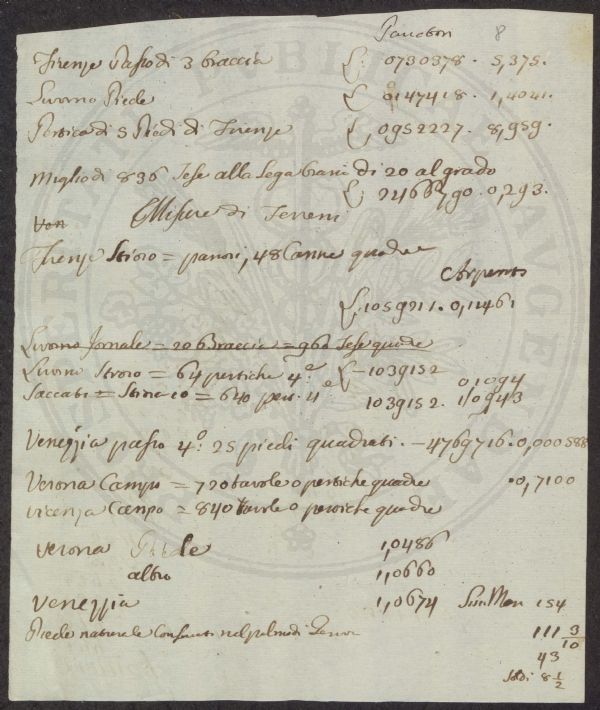 8
Firenze Passo di 3 braccia L: 0730378. 5,375.
Livorno Piede L, 0147418. 1,4041.
Pertica di 5 Piedi di Firenze L, 0952227. 8,959.
Miglio di 836 Tese alla Lega di 20 al grado
L: 0,293.
Von Misure di Terreni
Firenze Stioro = panori, 48 Canne quadre
Arpents
L. 1059211. 0,11461
Livorno Jornale = 20 Braccia = 960 Tese quadre
Livorno Stioro = 64 pertiche 4.e L - 1039152 0,1094
Saccata = = 640 pert. 4.e 1039152. 1,0943
Venezzia passo 4.o: 25 piedi quadrati. - 4769716. 0,000588
Verona Campo = 720 tavole o pertiche quadre .0,7100
Vicenza Campo = 840 tavole o pertiche quadre
Verona Piede 1,0486
altro 1,0660
Venezzia 1,0674 154
Piede naturale nel palmo di 111 3/10
43
Soldi 8 1/2
PUBLICAE
AUGENDAE